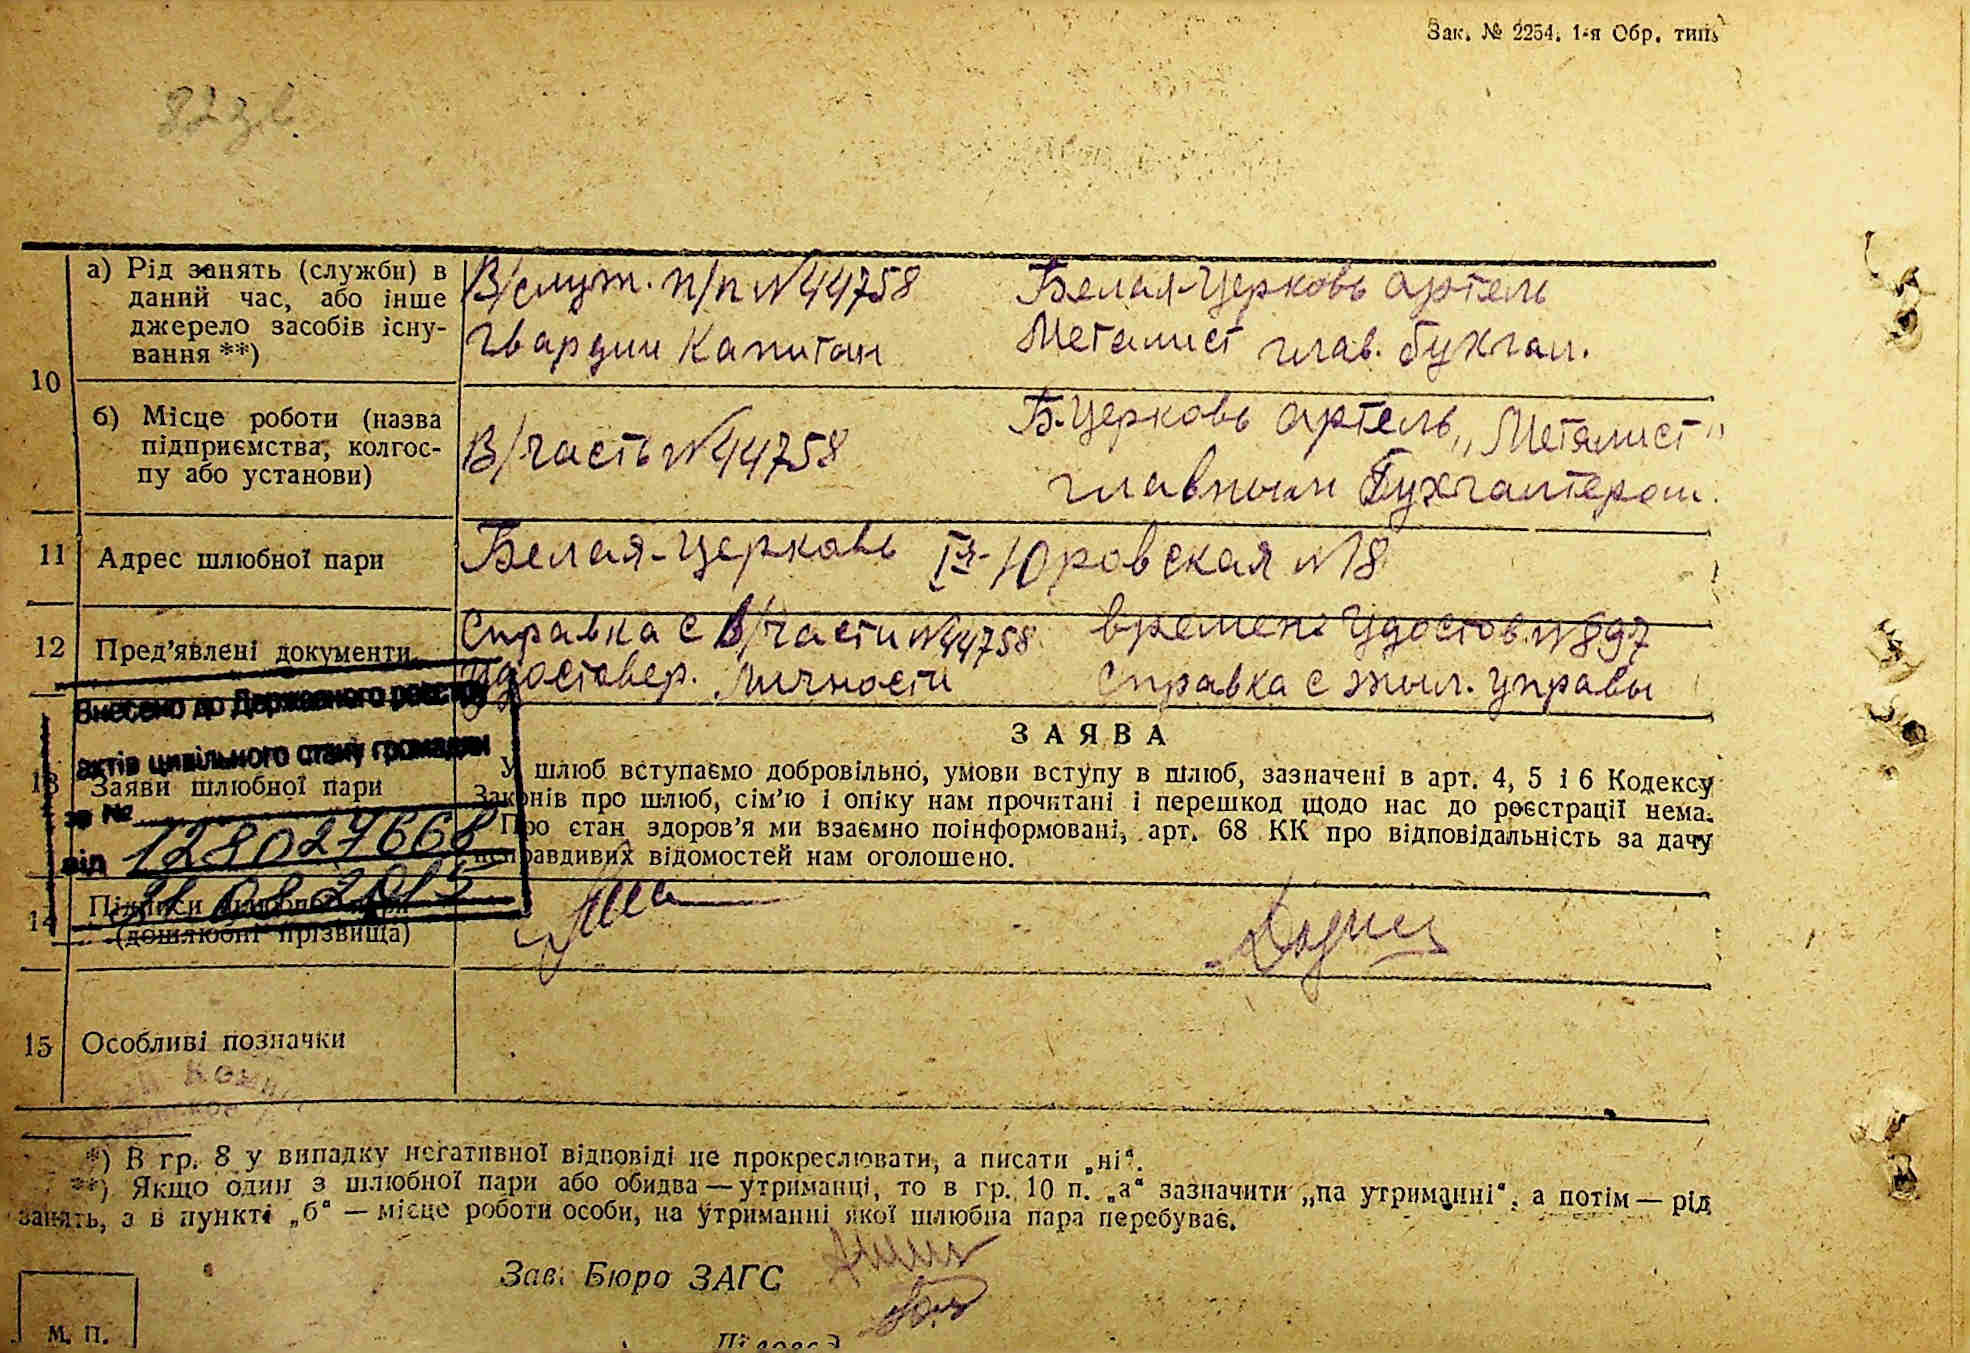 Зак. № 2254. 1-я Обр. тип.
82 зв.
10
а) Рід занять (служби) в
даний час, або інше
джерело засобів існу-
вання **)
В/служ. п/п №44758
Гвардии Капитан
Белая-Церковь артель
Металист глав. бухгал.
б) Місце роботи (назва
підприємства, колгос-
пу або установи)
В/часть №44758
Б.Церковь артель „Металист"
главным Бухгалтером.
11
Адрес шлюбної пари
Белая-Церковь Iя-Юровская №18
12
Пред'явлені документи
Справка с В/части №44758
Удостовер. Личности
времен. Удостов. №897
Справка с жил. управы
Внесено до Державного реєстру
актів цивільного стану громадян
за №
від 128027668
31 08 2015
13
Заяви шлюбної пари
ЗАЯВА
У шлюб вступаємо добровільно, умови вступу в шлюб, зазначені в арт. 4, 5 і 6 Кодексу
Законів про шлюб, сім'ю і опіку нам прочитані і перешкод щодо нас до реєстрації нема.
Про стан здоров'я ми взаємно поінформовані, арт. 68 КК про відповідальність за дачу
неправдивих відомостей нам оголошено.
14
Підписи шлюбної пари
(дошлюбні прізвища)
15
Особливі позначки
*) В гр. 8 у випадку негативної відповіді не прокреслювати, а писати „ні".
**) Якщо один з шлюбної пари або обидва — утриманці, то в гр. 10 п. „а" зазначити „на утриманні", а потім — рід
занять, а в пункті „б" — місце роботи особи, на утриманні якої шлюбна пара перебуває.
Зав. Бюро ЗАГС
М. П.